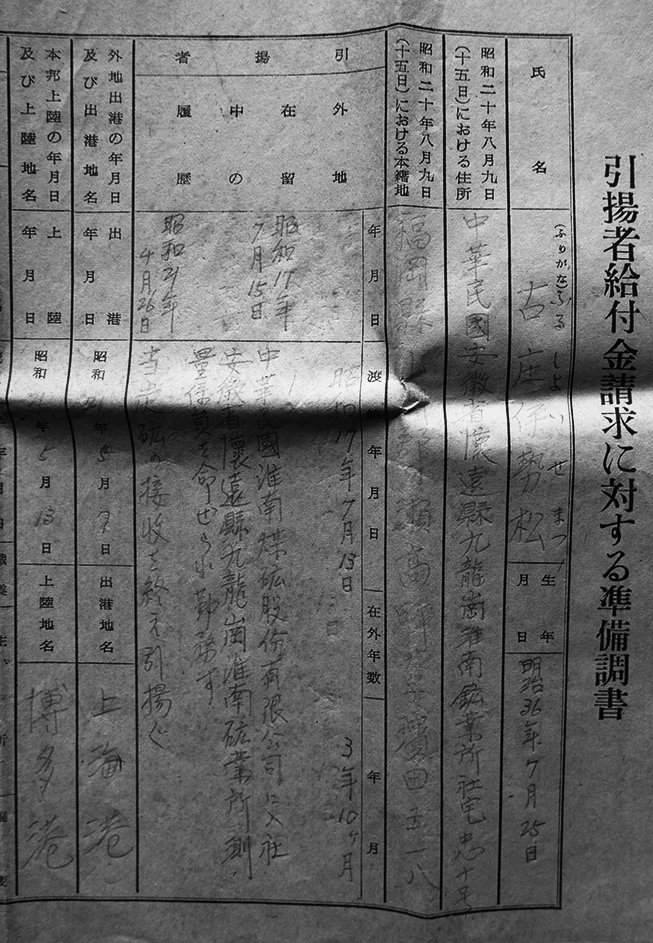 引揚者給付金請求に対する準備調書
氏名
(ふりがな)ふる しよ い せ まつ
古庄伊勢松
生年月日
明治36年7月25日
昭和二十年八月九日
(十五日)における住所
中華民國安徽省懷遠縣九龍崗淮南鉱業所社宅忠十号
昭和二十年八月九日
(十五日)における本籍地
福岡縣
瀬高町
濱田五一八
引揚者
外地
在留
中の
履歴
年月日
渡航年月日
在外年数
年
月
昭和17年7月13日
3年10ヶ月
昭和17年
7月15日
中華民國淮南煤砿股份有限公司に入社
安徽省懷遠縣九龍崗淮南砿業所測
量係員を命せられ勤務す
昭和21年
4月26日
当炭砿の接收を終え引揚ぐ
外地出港の年月日
及び出港地名
出港
年月日
昭和21年5月7日
出港地名
上海港
本邦上陸の年月日
及び上陸地名
上陸
年月日
昭和21年5月13日
上陸地名
博多港